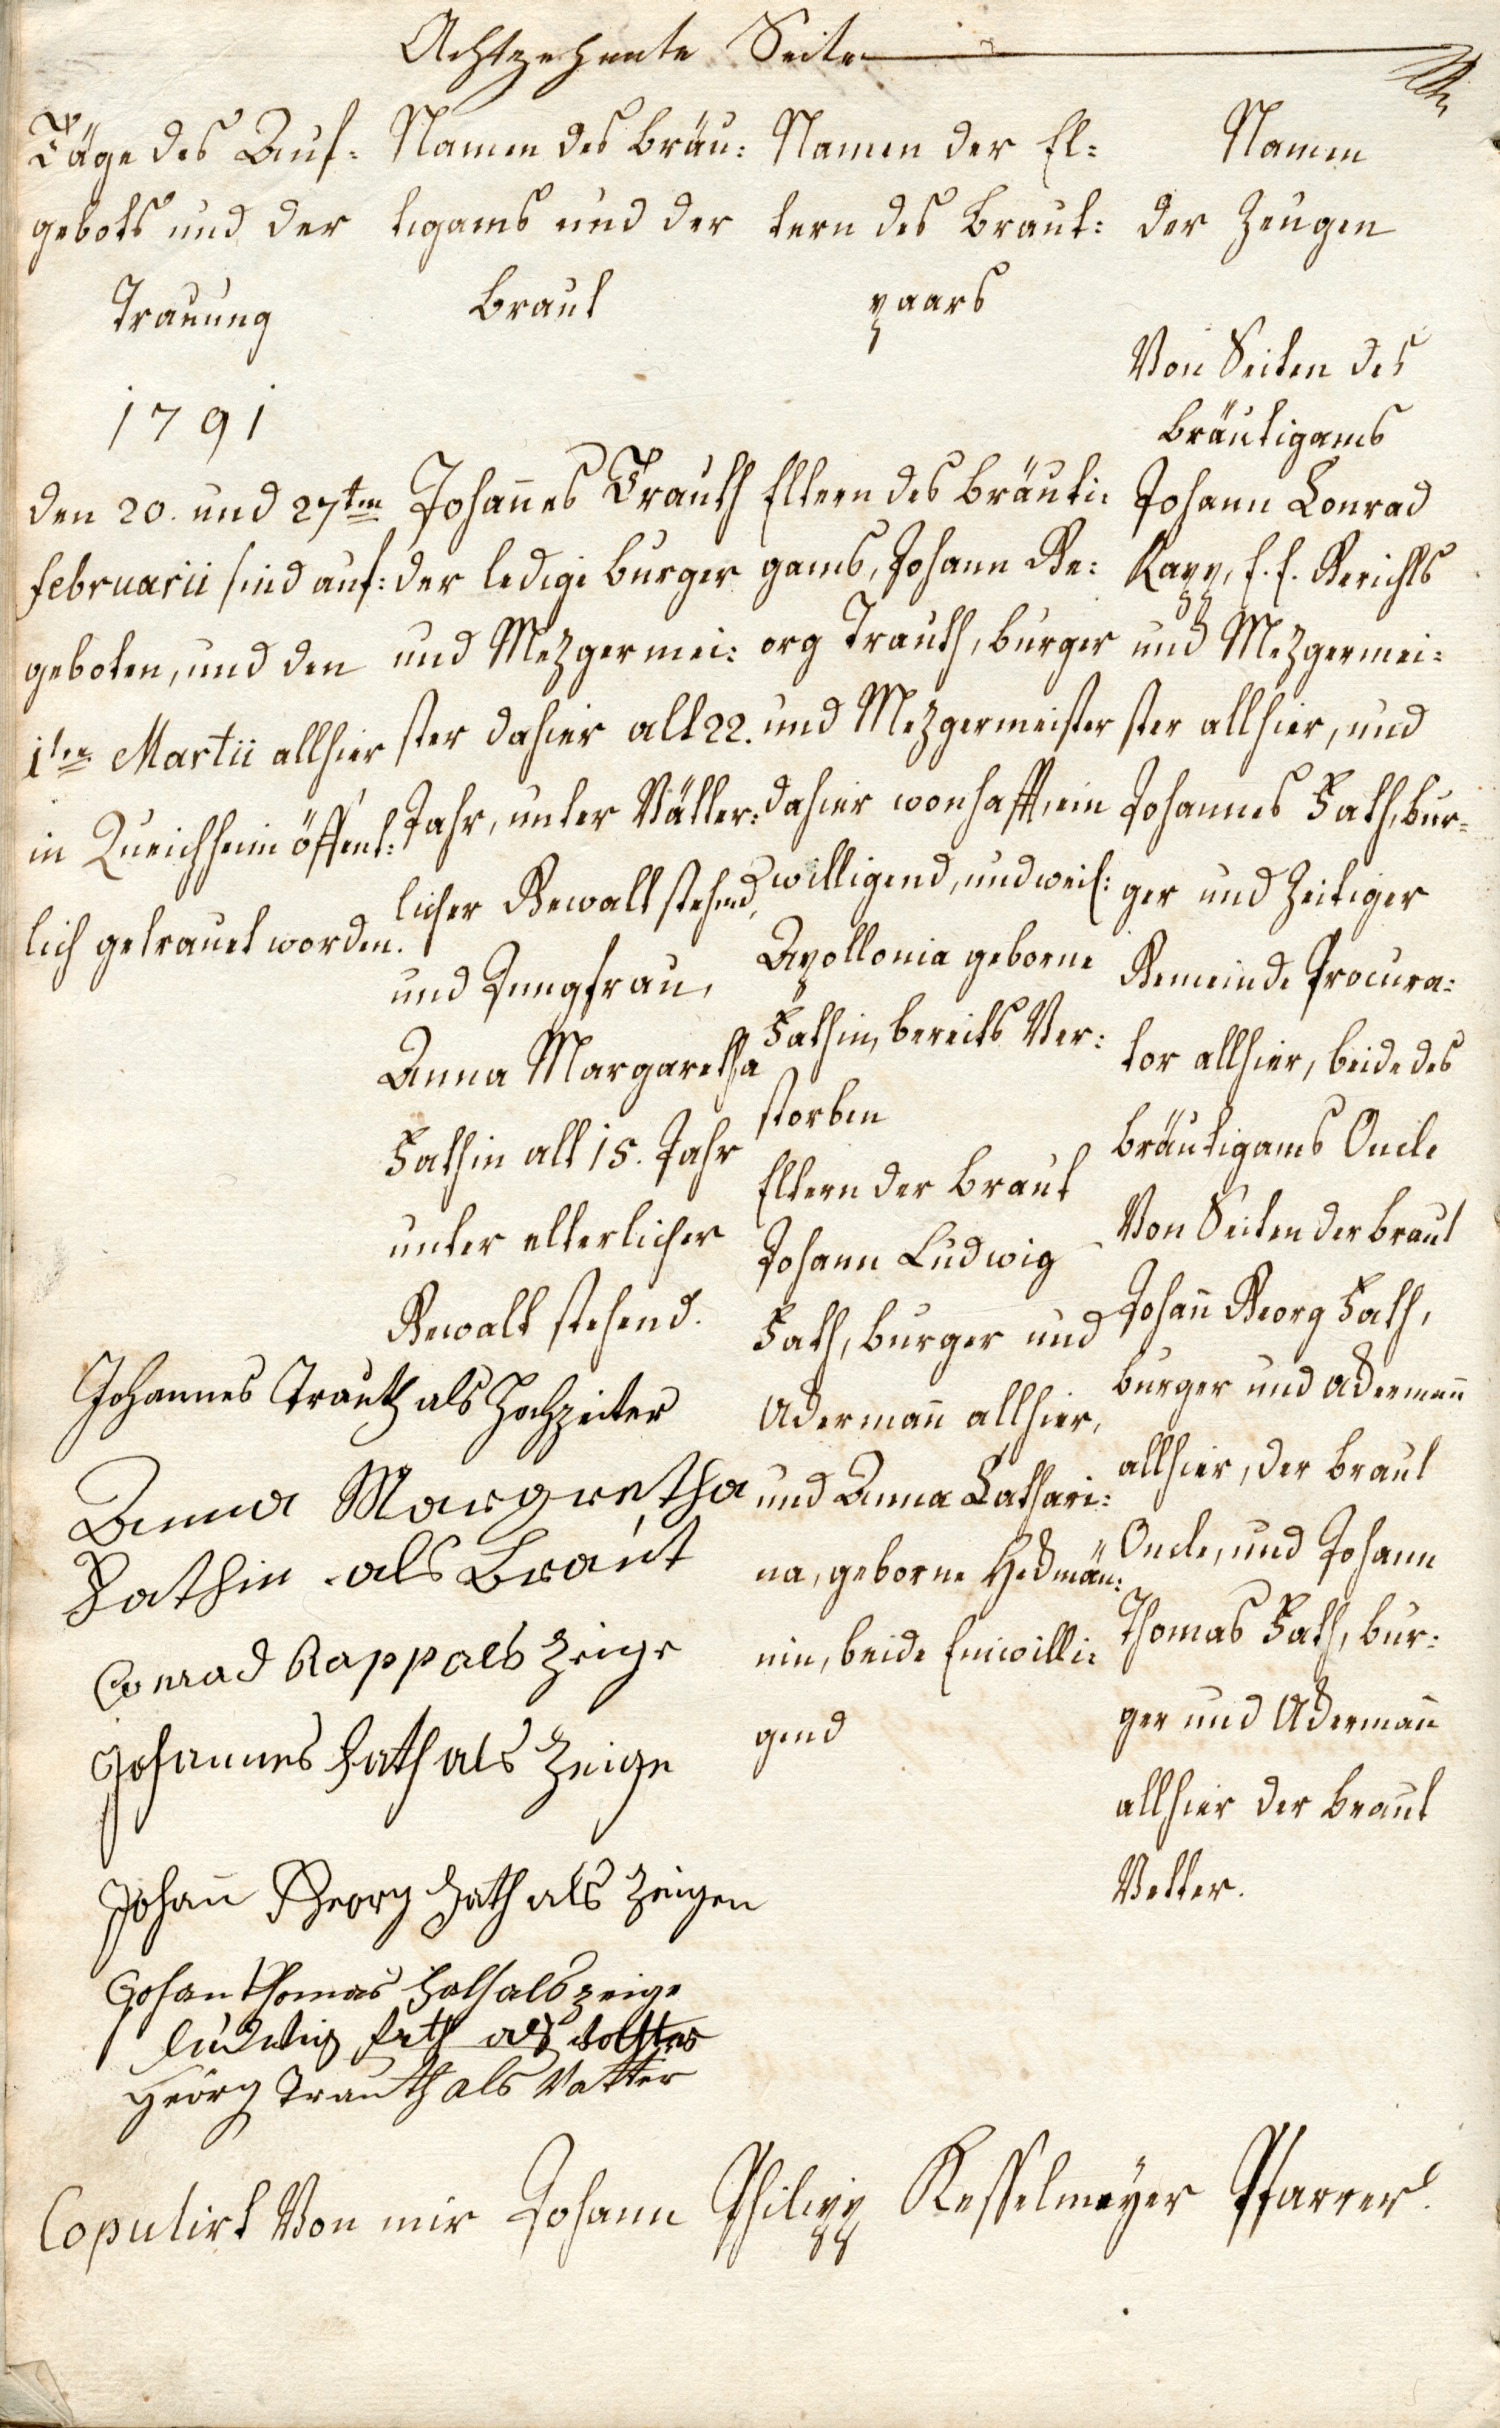 Achtzehnte Seite
Täge des Auf=
gebots und der
Trauung
1791
den 20. und 27ten
februarii sind auf=
geboten, und den
1ten Martii allhier
in Queichheim öffent=
lich getrauet worden.
Namen des Bräu=
tigams und der
Braut
Johannes Trauth
der ledige burger
und Mezgermei=
ster dahier alt 22.
Jahr, unter Vätter=
licher Gewalt stehend,
und Jungfrau,
Anna Margaretha
Fathin alt 15. Jahr
unter elterlicher
Gewalt stehend.
Namen der El=
tern des Braut=
paars
Eltern des Bräuti=
gams, Johann Ge=
org Trauth, burger
und Mezgermeister
dahier wonhafft, ein
willigend, und weil:
Apollonia geborne
Fathin, bereits Ver=
storben
Eltern der Braut
Johann Ludwig
Fath, burger und
Ackermañ allhier,
und Anna Cathari=
na, geborne Heckmän=
nin, beide Einwilli=
gend
Namen
der Zeugen
Von Seiten des
Bräutigams
Johann Conrad
Rapp, Gerichts
und Mezgermei=
ster allhier, und
Johannes Fath, bur=
ger und Zeitiger
Gemeinde Procura=
tor allhier, beide des
Bräutigams Oncle
Von Seiten der Braut
Johañ Georg Fath,
burger und Ackermañ
allhier, der Braut
Oncle, und Johann
Thomas Fath, bur=
ger und Ackermañ
allhier der Braut
Vetter.
Johannes Trauth als Hochzeiter
Anna Margretha
Fathin als Braut
Conrad Rapp als Zeige
Johannes Fath als Zeige
Johañ Georg Fath als Zeigen
Johan Thomas Fath als zeige
Ludwig Fath als Vatter
Georg Trauth als Vatter
Copulirt Von mir Johann Philipp Kesselmeyer Pfarrer.